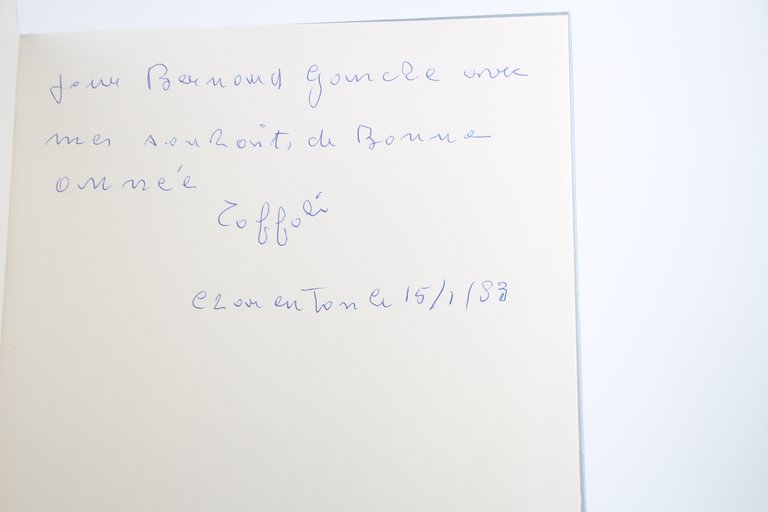 pour Bernard Gourcke avec
mes souhaits de Bonne
année
Toffoli
Charenton le 15/1/83